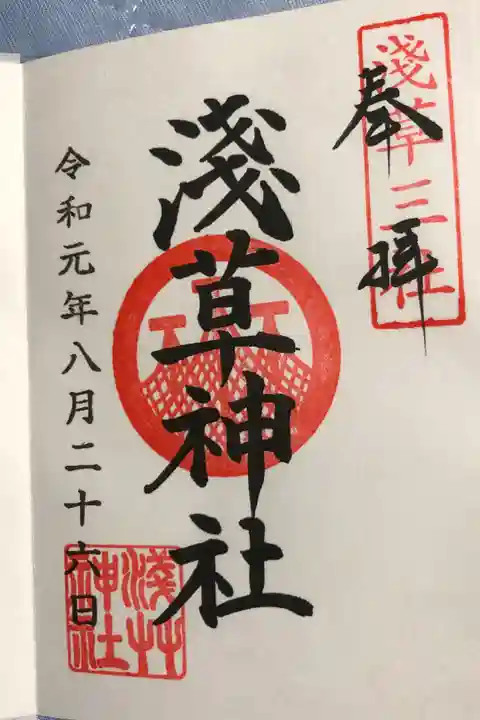 奉拝
淺草三社
淺草神社
令和元年八月二十六日
淺草
神社